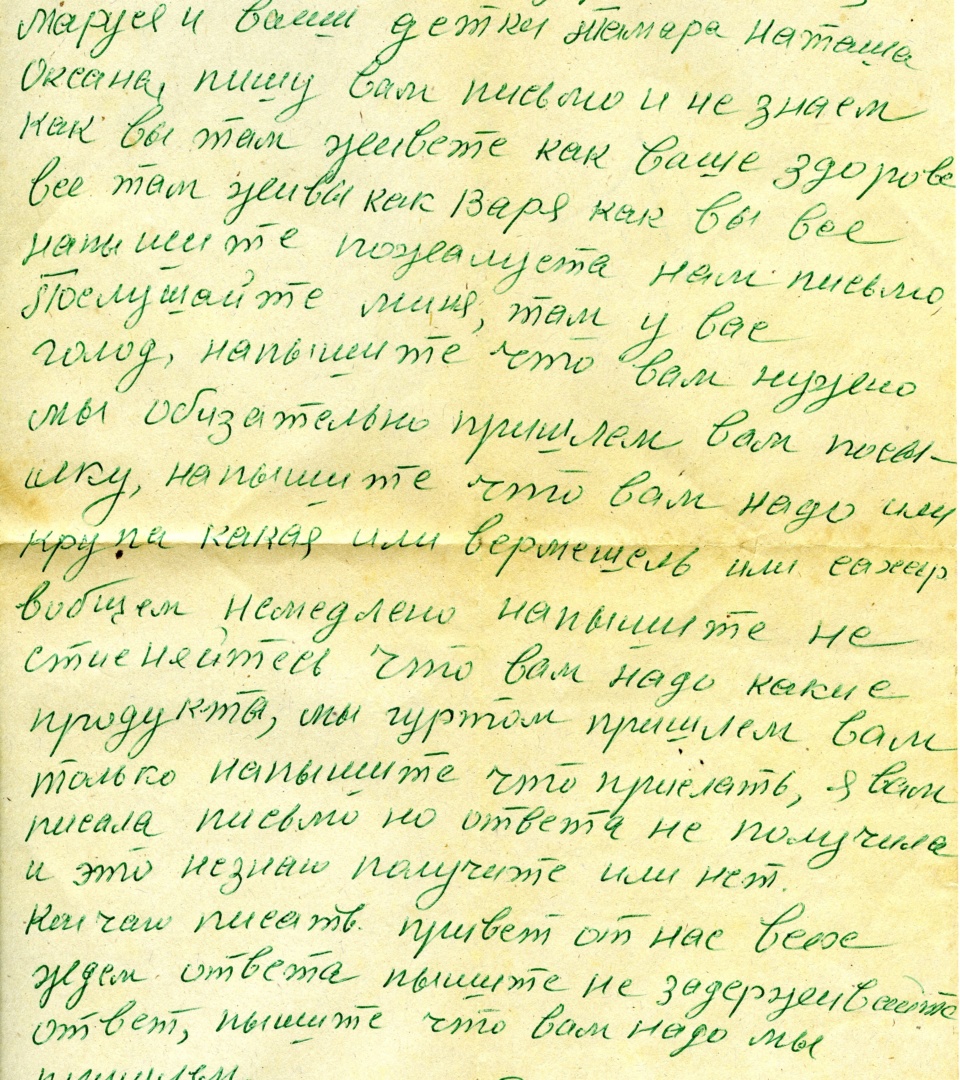 Маруся и ваши детки Тамара наташа
Оксана, пишу вам письмо и не знаем
как вы там живете как ваше здоровє
все там живы как Варя как вы все
напышите пожалуста нам письмо
Послушайте миня, там у вас
голод, напышите что вам нужно
мы обизательно пришлем вам посы-
лку, напышите что вам надо или
крупа какая или вермешель или сахар
вобщем немедлено напышите не
стисняйтесь что вам надо какие
продукты, мы гуртом пришлем вам
только напышите что прислать, я вам
писала письмо но ответа не получила
и это незнаю получите или нет.
Кончаю писать. привет от нас всех
ждем ответа пышите не задерживайте
ответ, пышите что вам надо мы